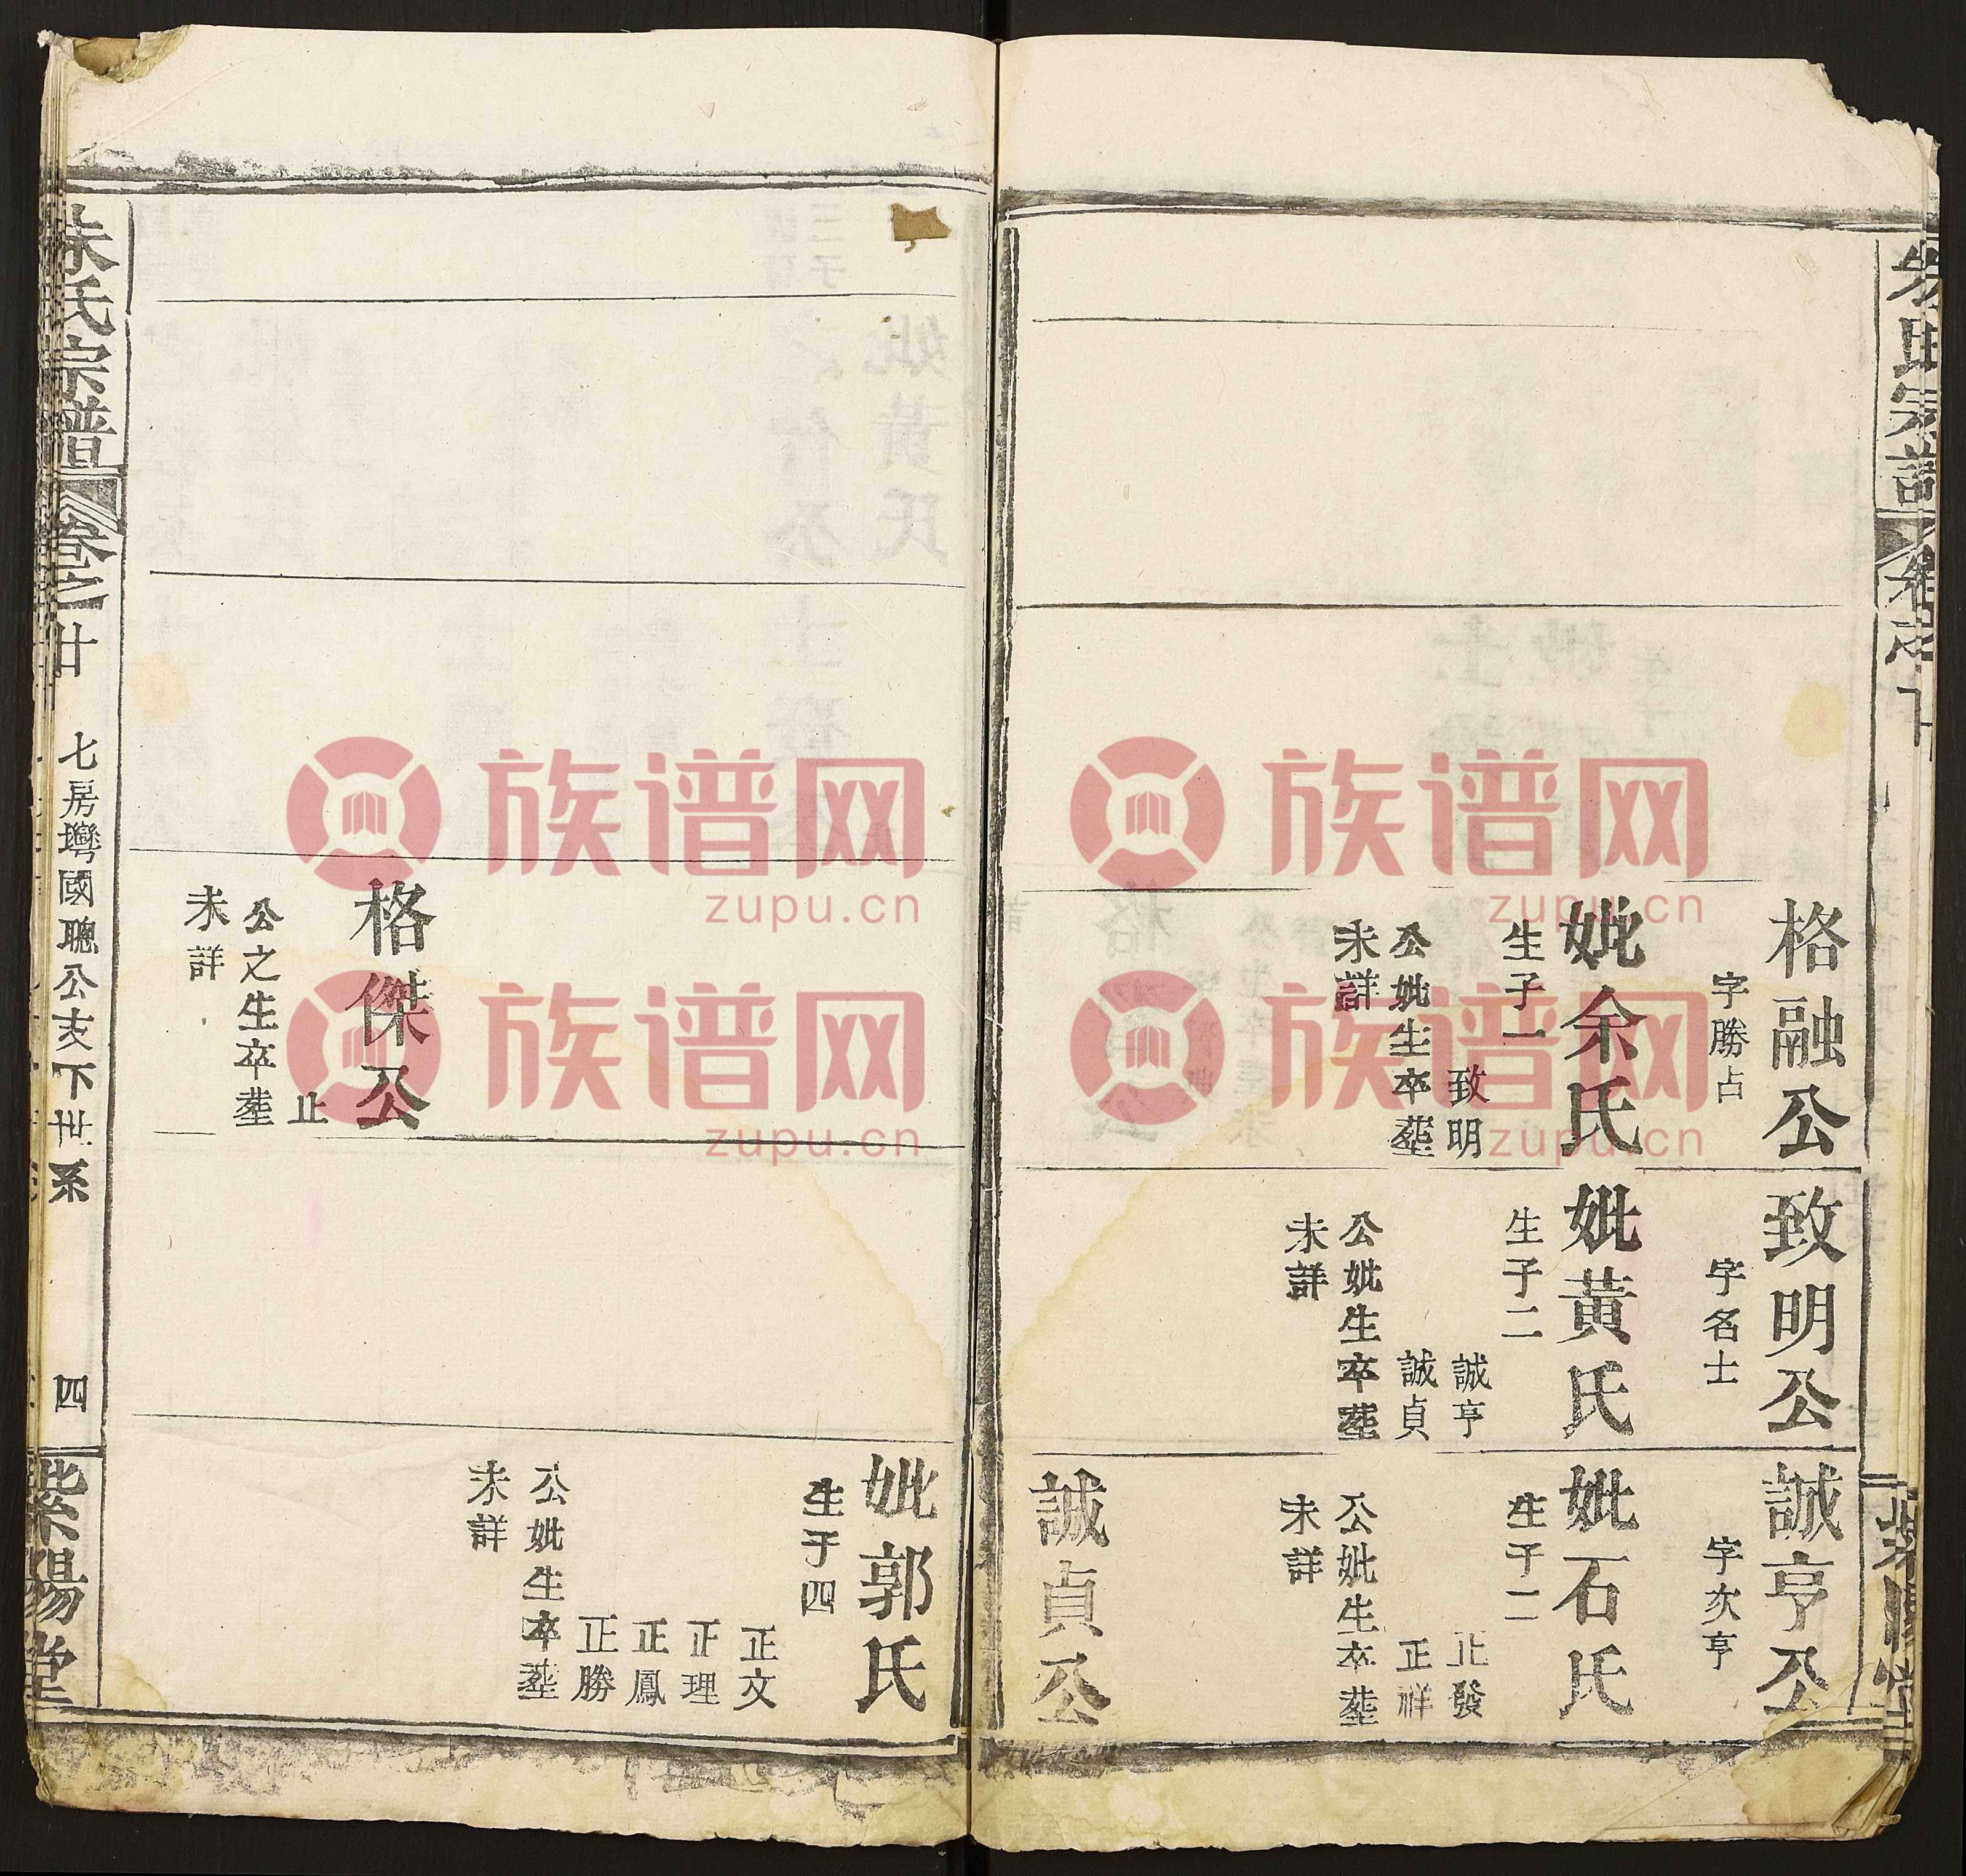 格融公
字勝占
妣余氏
生子一
致明
公妣生卒塟
未詳
致明公
字名士
妣黃氏
生子二
誠亨
誠貞
公妣生卒塟
未詳
誠亨公
字亥亨
妣石氏
生子二
正發
正祥
公妣生卒塟
未詳
誠貞公
格傑公
止
公之生卒塟
未詳
妣郭氏
生子四
正文
正理
正鳳
正勝
公妣生卒塟
未詳
朱氏宗譜
卷之廿
七房灣國聰公支下世系
四
紫陽堂
族谱网
zupu.cn
族谱网
zupu.cn
族谱网
zupu.cn
族谱网
zupu.cn